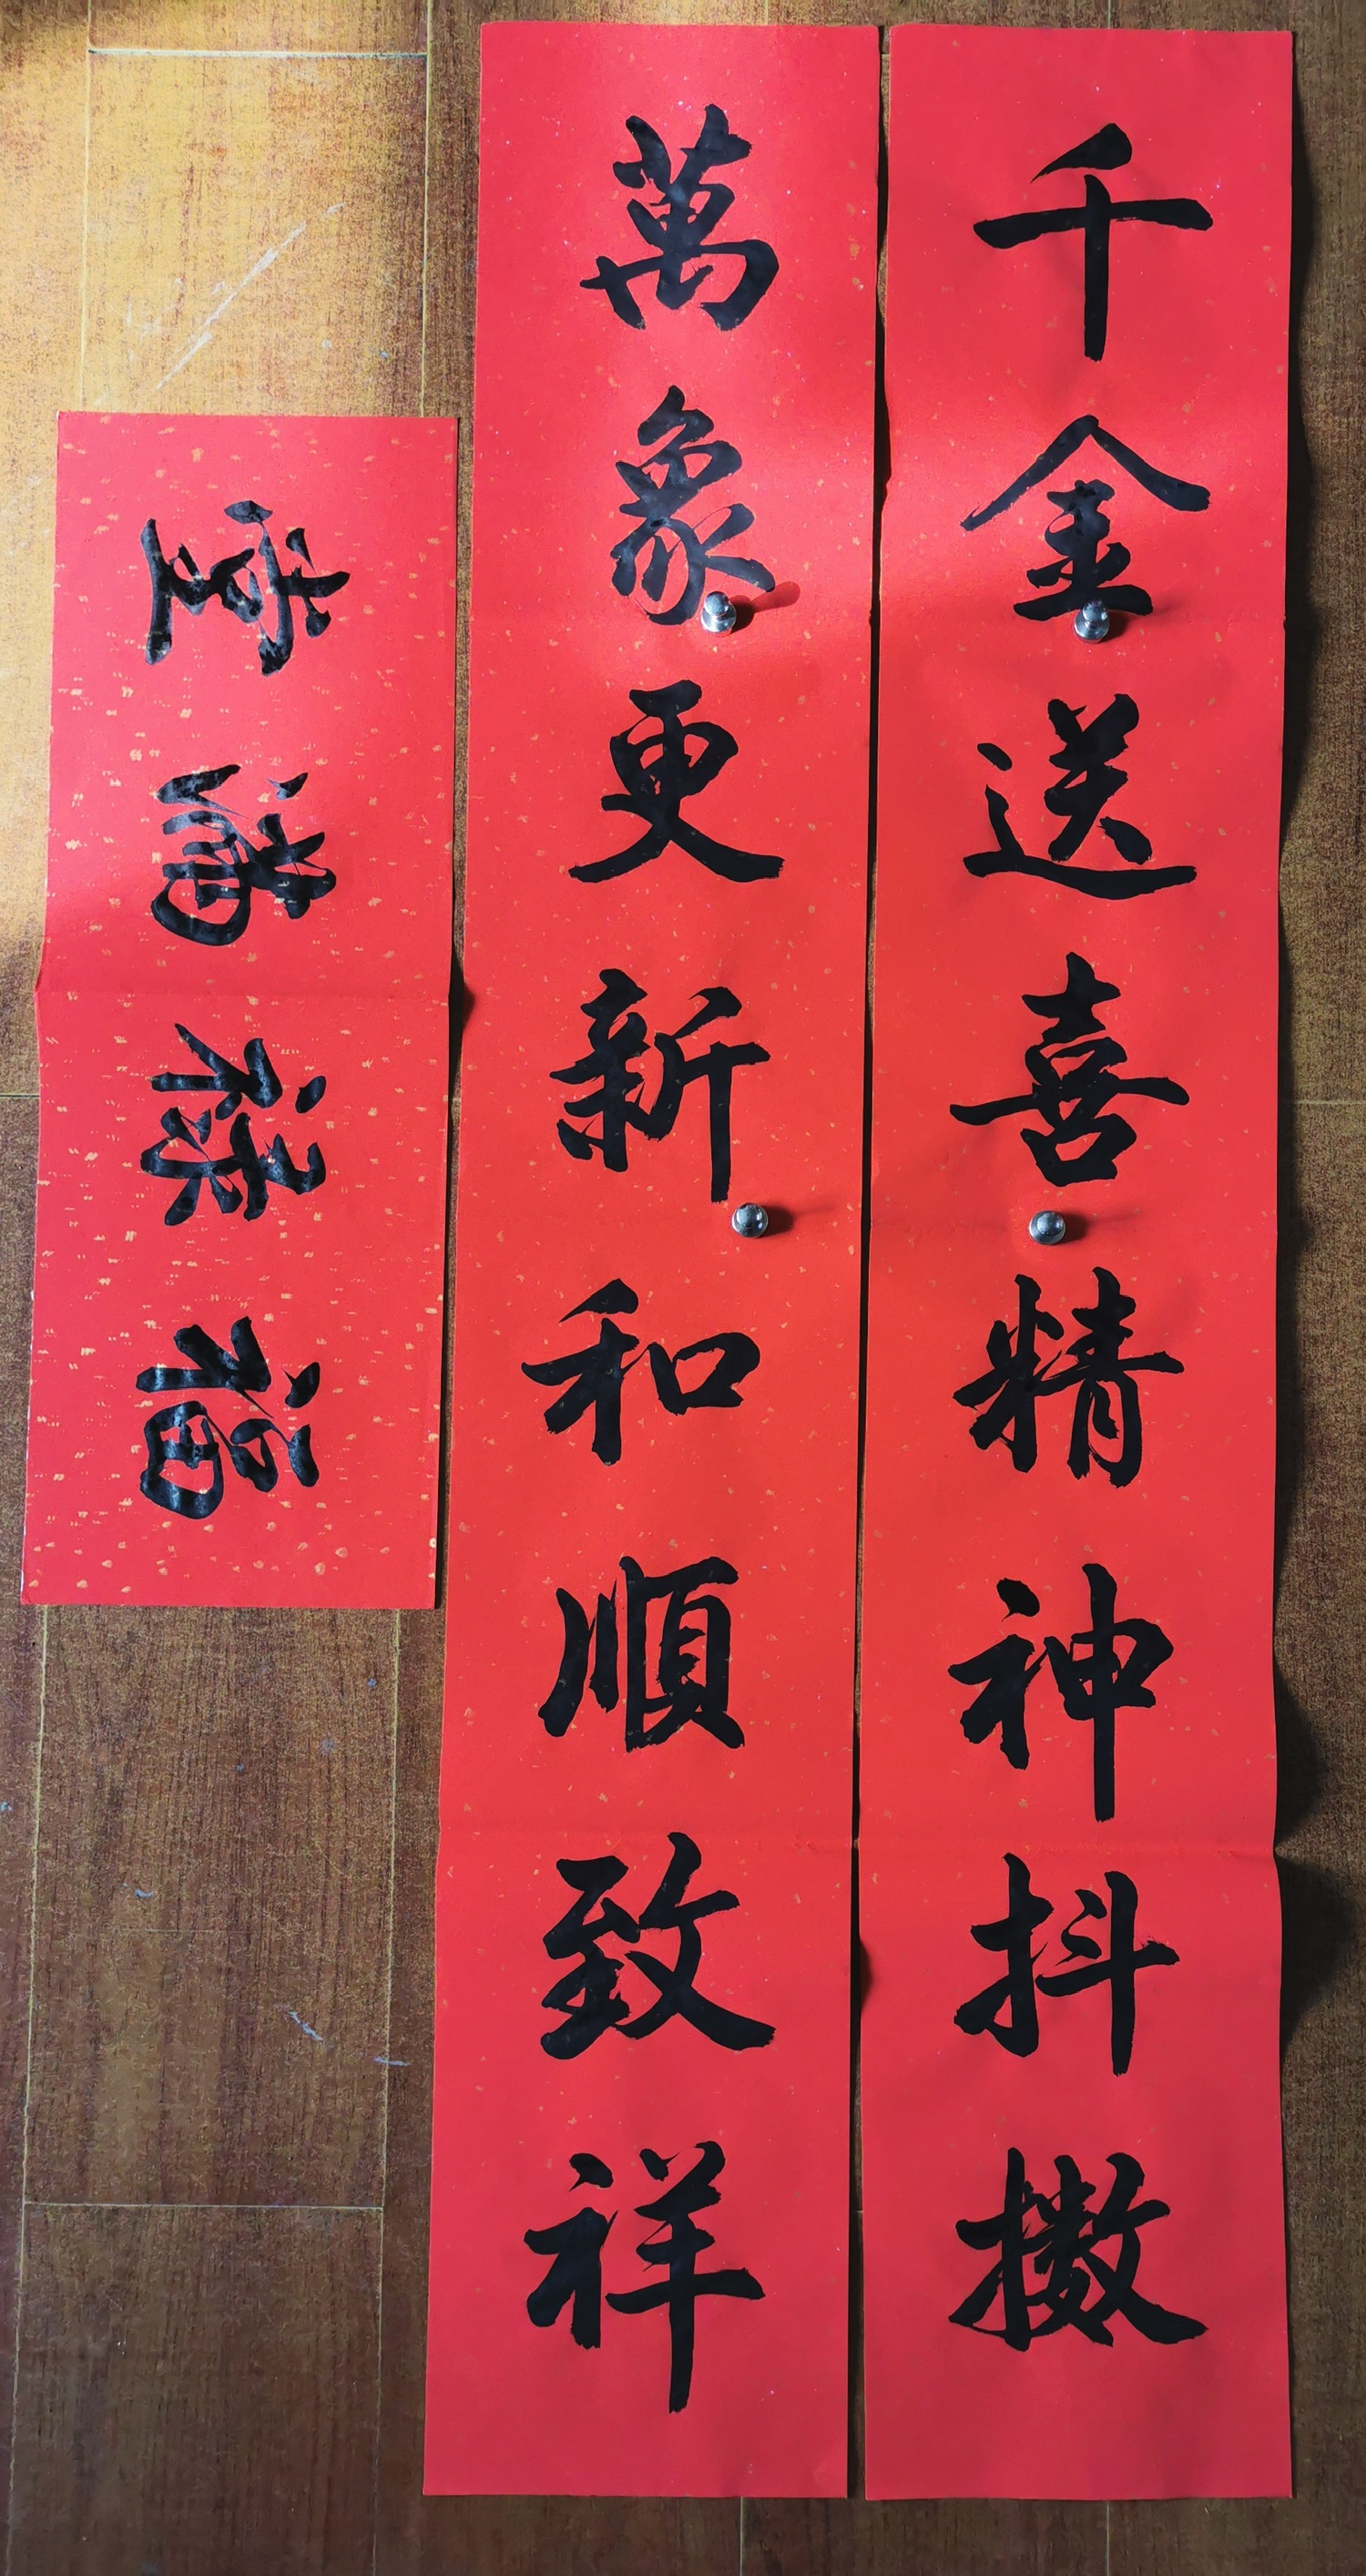 千金送喜精神抖擞
萬象更新和順致祥
福禄满堂